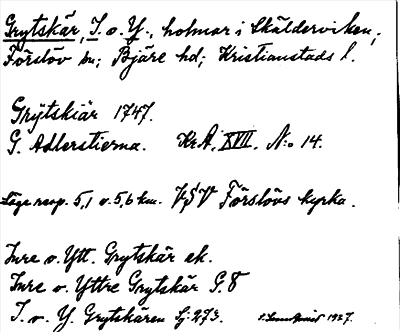 Grytskär, I. o. Y., holmar i Skälderviken,
Förslöv sn; Bjäre hd; Kristianstads l.
Grÿtskiär 1747.
G. Adlerstierna. KrA, XVII, N:o 14.
Läge resp. 5,1 o. 5,6 km. VSV Förslövs kyrka.
Inre o. Ytt. Grytskär ek.
Inre o. Yttre Grytskär G.
I. o. Y. Grytskären Lj. 273. 1927.